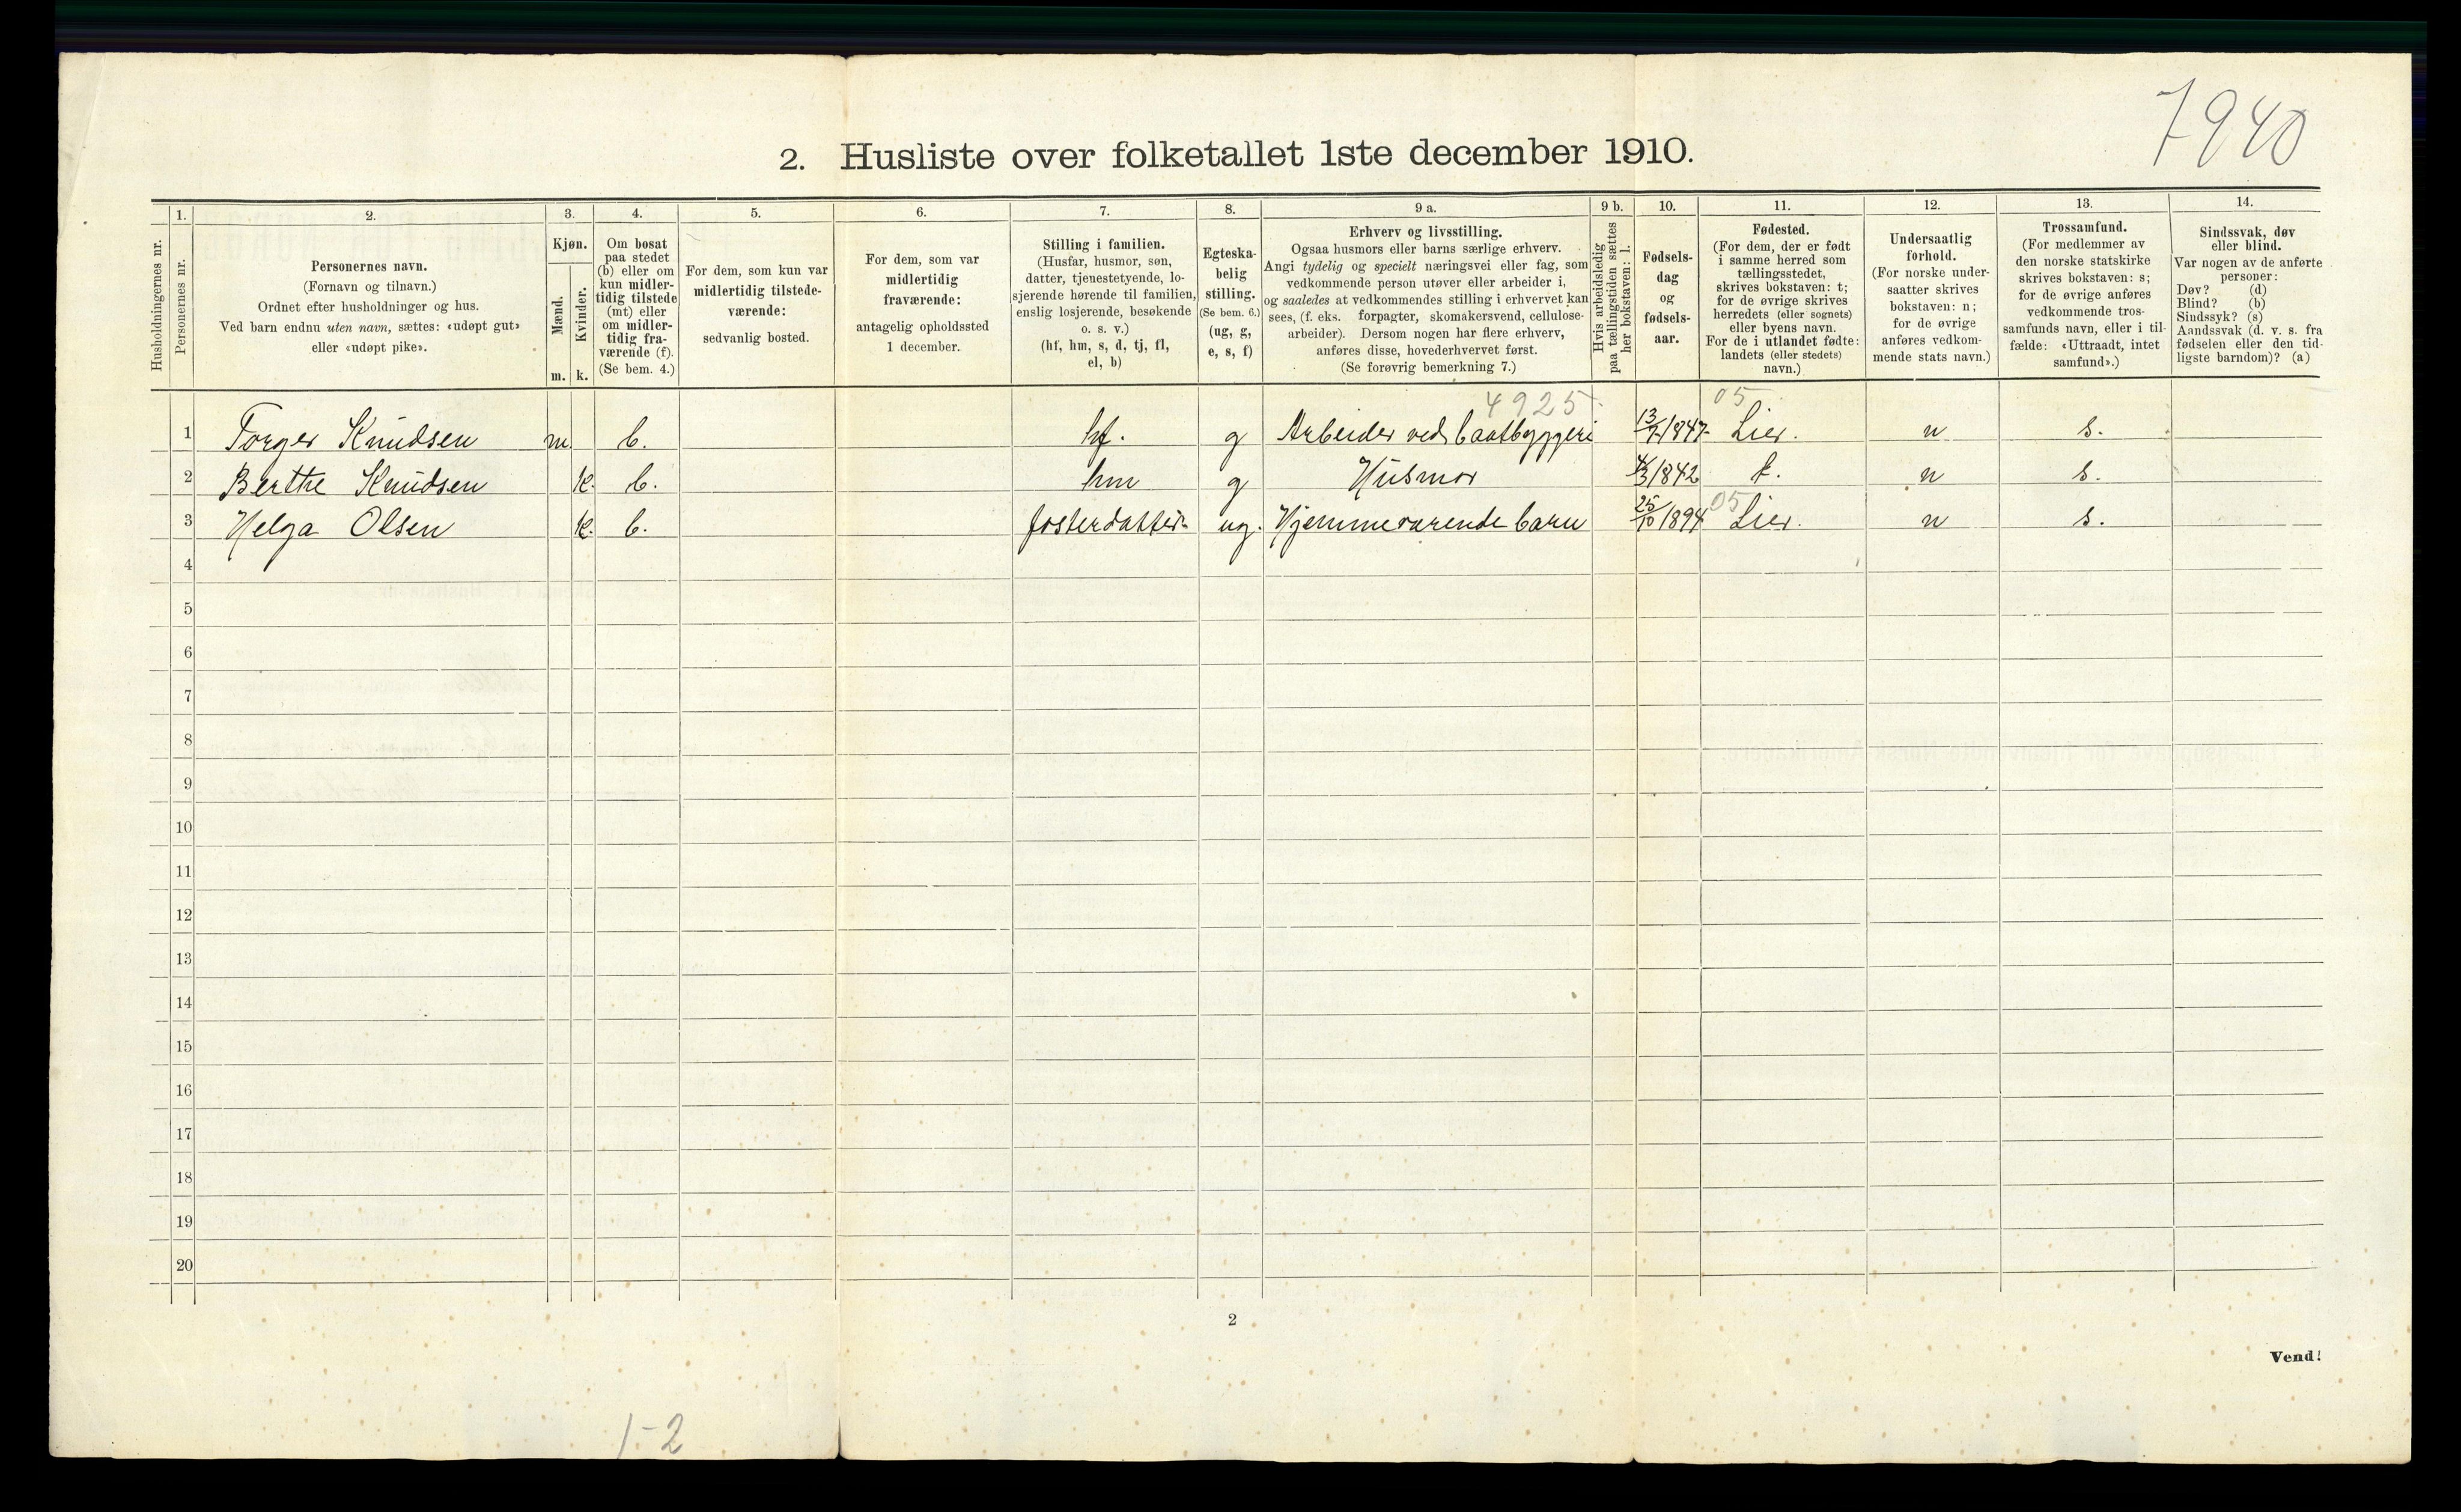 7940
2. Husliste over folketallet 1ste december 1910.
Husholdningernes nr.
1.
Personernes nr.
2.
Personernes navn.
(Fornavn og tilnavn.)
Ordnet efter husholdninger og hus.
Ved barn endnu uten navn, sættes: «udøpt gut»
eller «udøpt pike».
3.
Kjøn.
Mænd.
Kvinder.
m. k.
4.
Om bosat
paa stedet
(b) eller om
kun midler-
tidig tilstede
(mt) eller
om midler-
tidig fra-
værende (f).
(Se bem. 4.)
5.
For dem, som kun var
midlertidig tilstede-
værende:
sedvanlig bosted.
6.
For dem, som var
midlertidig
fraværende:
antagelig opholdssted
1 december.
7.
Stilling i familien.
(Husfar, husmor, søn,
datter, tjenestetyende, lo-
sjerende hørende til familien,
enslig losjerende, besøkende
o. s. v.)
(hf, hm, s, d, tj, fl,
el, b)
8.
Egteska-
belig
stilling.
(Se bem. 6.)
(ug, g,
e, s, f)
9 a.
Erhverv og livsstilling.
Ogsaa husmors eller barns særlige erhverv.
Angi tydelig og specielt næringsvei eller fag, som
vedkommende person utøver eller arbeider i,
og saaledes at vedkommendes stilling i erhvervet kan
sees, (f. eks. forpagter, skomakersvend, cellulose-
arbeider). Dersom nogen har flere erhverv,
anføres disse, hovederhvervet først.
(Se forøvrig bemerkning 7.)
9 b.
Hvis arbeidsledig
paa tællingstiden sættes
her bokstaven: l.
10.
Fødsels-
dag
og
fødsels-
aar.
11.
Fødested.
(For dem, der er født
i samme herred som
tællingsstedet,
skrives bokstaven: t;
for de øvrige skrives
herredets (eller sognets)
eller byens navn.
For de i utlandet fødte:
landets (eller stedets)
navn.)
12.
Undersaatlig
forhold.
(For norske under-
saatter skrives
bokstaven: n;
for de øvrige
anføres vedkom-
mende stats navn.)
13.
Trossamfund.
(For medlemmer av
den norske statskirke
skrives bokstaven: s;
for de øvrige anføres
vedkommende tros-
samfunds navn, eller i til-
fælde: «Uttraadt, intet
samfund».)
14.
Sindssvak, døv
eller blind.
Var nogen av de anførte
personer:
Døv? (d)
Blind? (b)
Sindssyk? (s)
Aandssvak (d. v. s. fra
fødselen eller den tid-
ligste barndom)? (a)
4925 05
1 Torger Knudsen m. b. hf. g Arbeider ved baatbyggeri 13/7 1847 Lier. n s.
2 Berthe Knudsen k. b. hm g Husmor 4/3 1842 t. n s.
05
3 Helga Olsen k. b. fosterdatter ug. Hjemmeværende barn 25/10 1894 Lier. n s.
4
5
6
7
8
9
10
11
12
13
14
15
16
17
18
19
20
2
Vend!
1-2